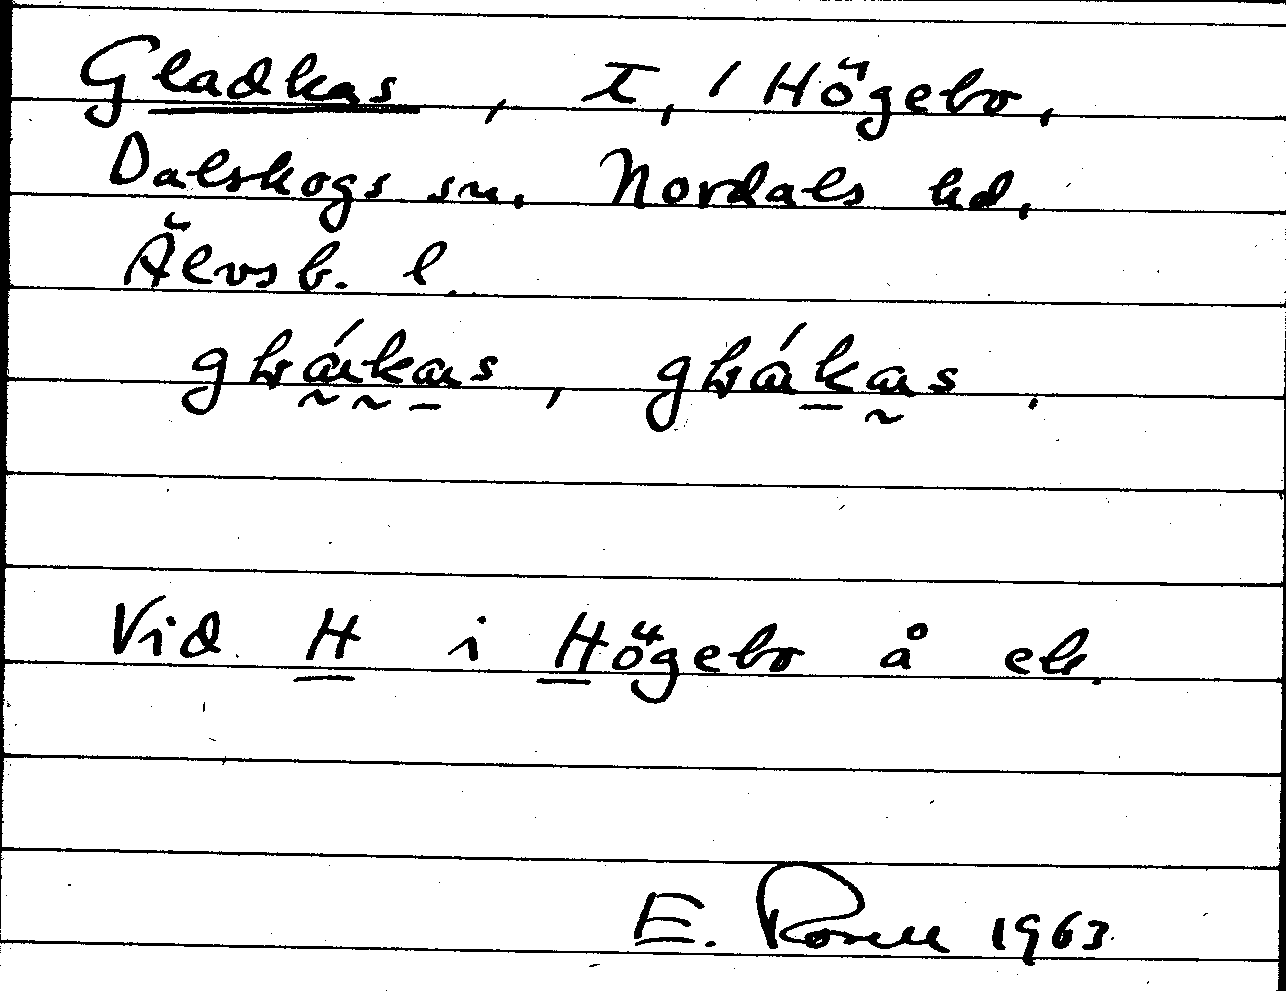 Gladkas, t, / Högebo,
Dalskogs sn. Nordals hd,
Älvsb. l.
Vid H i Högebo å ek.
E. Rosell 1963